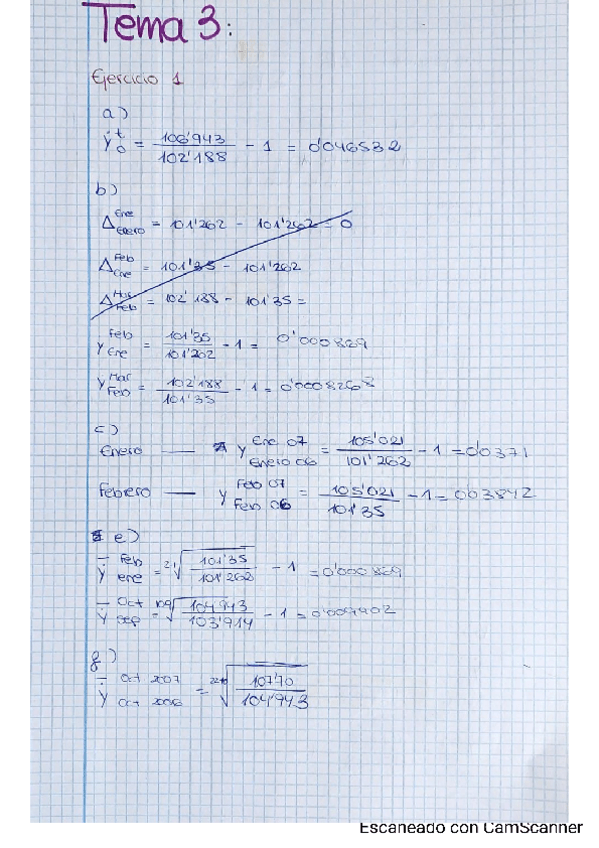 Tema 3:
Ejercicio 1
a)
ẏ t 0 = 106'943 / 102'188 - 1 = 0'046532
b)
Δ Ene Enero = 101'262 - 101'262 = 0
Δ Feb Ene = 101'35 - 101'262
Δ Mar Feb = 102'188 - 101'35 =
y Feb Ene = 101'35 / 101'262 - 1 = 0'000869
y Mar Feb = 102'188 / 101'35 - 1 = 0'008268
c)
Enero — y Ene 07 Enero 06 = 105'021 / 101'262 - 1 = 0'0371
Febrero — y Feb 07 Feb 06 = 105'021 / 101'35 - 1 = 0'03842
e)
ẏ feb ene = √ 101'35 / 101'262 - 1 = 0'000869
ẏ Oct sep = √ 104'943 / 103'914 - 1 = 0'009902
g)
ẏ Oct 2007 Oct 2006 = √ 107'70 / 104'943
Escaneado con CamScanner